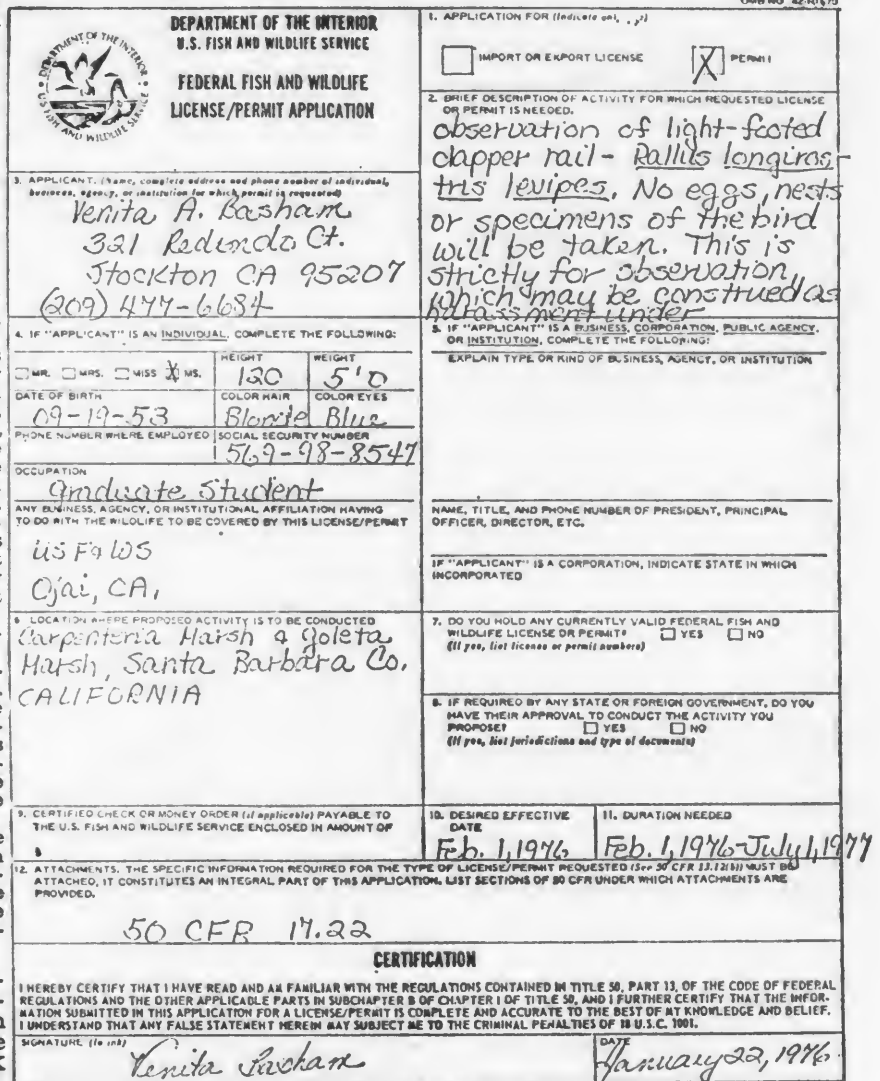 OMB NO. 42-R1670
DEPARTMENT OF THE INTERIOR
U.S. FISH AND WILDLIFE SERVICE
FEDERAL FISH AND WILDLIFE
LICENSE/PERMIT APPLICATION
1. APPLICATION FOR (Indicate only
IMPORT OR EXPORT LICENSE
X PERMIT
2. BRIEF DESCRIPTION OF ACTIVITY FOR WHICH REQUESTED LICENSE
OR PERMIT IS NEEDED.
observation of light-footed
clapper rail- Rallus longiros-
tris levipes. No eggs, nests
or specimens of the bird
will be taken. This is
strictly for observation,
which may be construed as
harassment under
3. APPLICANT. (Name, complete address and phone number of individual,
business, agency, or institution for which permit is requested)
Venita A. Basham
321 Redondo Ct.
Stockton CA 95207
(209) 477-6684
4. IF "APPLICANT" IS AN INDIVIDUAL, COMPLETE THE FOLLOWING:
MR. MRS. MISS X MS.
HEIGHT
120
WEIGHT
5'0
DATE OF BIRTH
09-19-53
COLOR HAIR
Blonde
COLOR EYES
Blue
PHONE NUMBER WHERE EMPLOYED
SOCIAL SECURITY NUMBER
569-98-8547
OCCUPATION
Graduate Student
ANY BUSINESS, AGENCY, OR INSTITUTIONAL AFFILIATION HAVING
TO DO WITH THE WILDLIFE TO BE COVERED BY THIS LICENSE/PERMIT
US F&WS
Ojai, CA,
5. IF "APPLICANT" IS A BUSINESS, CORPORATION, PUBLIC AGENCY,
OR INSTITUTION, COMPLETE THE FOLLOWING:
EXPLAIN TYPE OR KIND OF BUSINESS, AGENCY, OR INSTITUTION
NAME, TITLE, AND PHONE NUMBER OF PRESIDENT, PRINCIPAL
OFFICER, DIRECTOR, ETC.
IF "APPLICANT" IS A CORPORATION, INDICATE STATE IN WHICH
INCORPORATED
6. LOCATION WHERE PROPOSED ACTIVITY IS TO BE CONDUCTED
Carpenteria Marsh & Goleta
Marsh, Santa Barbara Co.
CALIFORNIA
7. DO YOU HOLD ANY CURRENTLY VALID FEDERAL FISH AND
WILDLIFE LICENSE OR PERMIT? YES NO
(If yes, list license or permit numbers)
8. IF REQUIRED BY ANY STATE OR FOREIGN GOVERNMENT, DO YOU
HAVE THEIR APPROVAL TO CONDUCT THE ACTIVITY YOU
PROPOSE? YES NO
(If yes, list jurisdictions and type of documents)
9. CERTIFIED CHECK OR MONEY ORDER (if applicable) PAYABLE TO
THE U.S. FISH AND WILDLIFE SERVICE ENCLOSED IN AMOUNT OF
$
10. DESIRED EFFECTIVE
DATE
Feb. 1, 1976
11. DURATION NEEDED
Feb. 1, 1976-July 1, 1977
12. ATTACHMENTS. THE SPECIFIC INFORMATION REQUIRED FOR THE TYPE OF LICENSE/PERMIT REQUESTED (See 50 CFR 13.12(b)) MUST BE
ATTACHED, IT CONSTITUTES AN INTEGRAL PART OF THIS APPLICATION. LIST SECTIONS OF 50 CFR UNDER WHICH ATTACHMENTS ARE
PROVIDED.
50 CFR 17.22
CERTIFICATION
I HEREBY CERTIFY THAT I HAVE READ AND AM FAMILIAR WITH THE REGULATIONS CONTAINED IN TITLE 50, PART 13, OF THE CODE OF FEDERAL
REGULATIONS AND THE OTHER APPLICABLE PARTS IN SUBCHAPTER B OF CHAPTER I OF TITLE 50, AND I FURTHER CERTIFY THAT THE INFOR-
MATION SUBMITTED IN THIS APPLICATION FOR A LICENSE/PERMIT IS COMPLETE AND ACCURATE TO THE BEST OF MY KNOWLEDGE AND BELIEF.
I UNDERSTAND THAT ANY FALSE STATEMENT HEREIN MAY SUBJECT ME TO THE CRIMINAL PENALTIES OF 18 U.S.C. 1001.
SIGNATURE (In ink)
Venita Basham
DATE
January 22, 1976